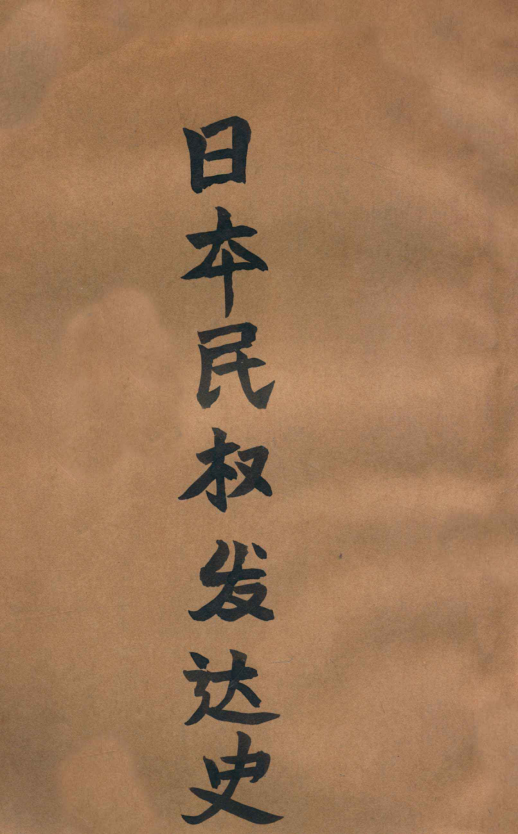 日本民权发达史